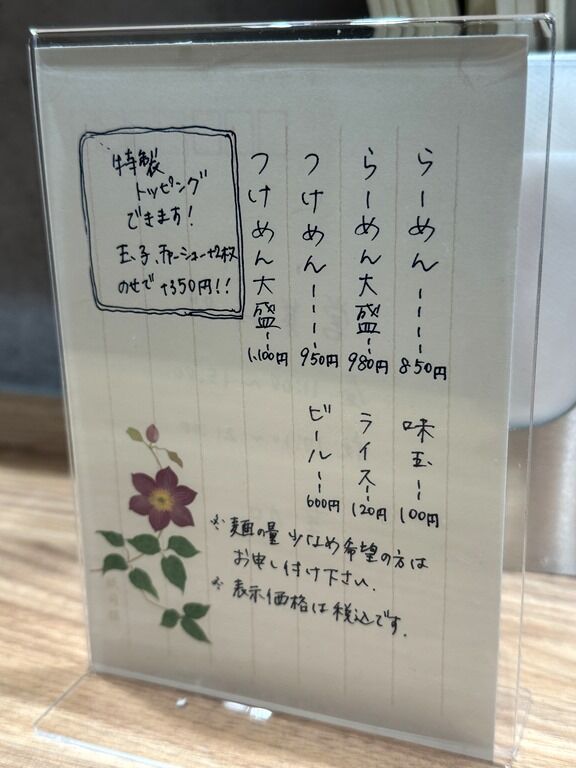 らーめん----850円
らーめん大盛--980円
つけめん----950円
つけめん大盛--1,100円
味玉--100円
ライス--120円
ビール--600円
特製
トッピング
できます!
玉子、チャーシュー+2枚
のせで+350円!!
※麺の量 少なめ希望の方は
お申し付け下さい.
※表示価格は税込です.